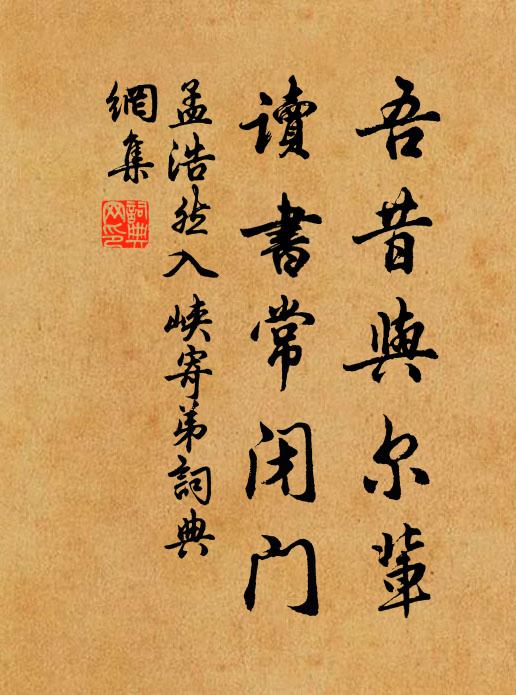 吾昔與尔輩
讀書常闭门
孟浩然入峽寄弟詞典
網集
詞典
网印